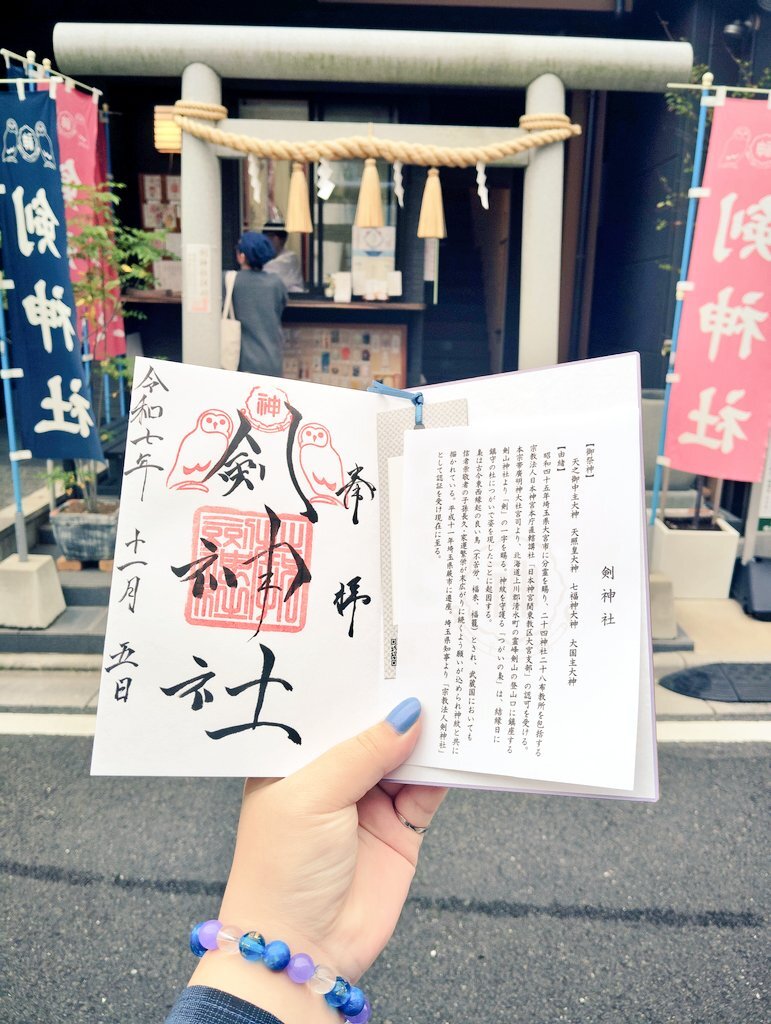 剣神社
剣神社
奉拝
神
剣神社
令和七年 十一月 五日
剣神社
【御祭神】
天之御中主大神 天照皇大神 七福神大神 大国主大神
【由緒】
昭和四十五年埼玉県大宮市に分霊を賜り、二十四神社二十八布教所を包括する
宗教法人日本神宮本庁直轄講社「日本神宮関東教区大宮支部」の認可を受ける。
本宗帯廣明神大社宮司より、北海道上川郡清水町の霊峰剣山の登山口に鎮座する
剣山神社より「剣」の一字を賜る。神紋を守護る「つがいの梟」は、結縁日に
鎮守の杜につがいで姿を現したことに起因する。
梟は古今東西縁起の良い鳥(不苦労、福来、福籠)とされ、武蔵国においても
信者崇敬者の子孫長久・家運繁栄が末広がりに続くよう願いが込められ神紋と共に
描かれている。平成十一年埼玉県蕨市に遷座。埼玉県知事より「宗教法人剣神社」
として認証を受け現在に至る。